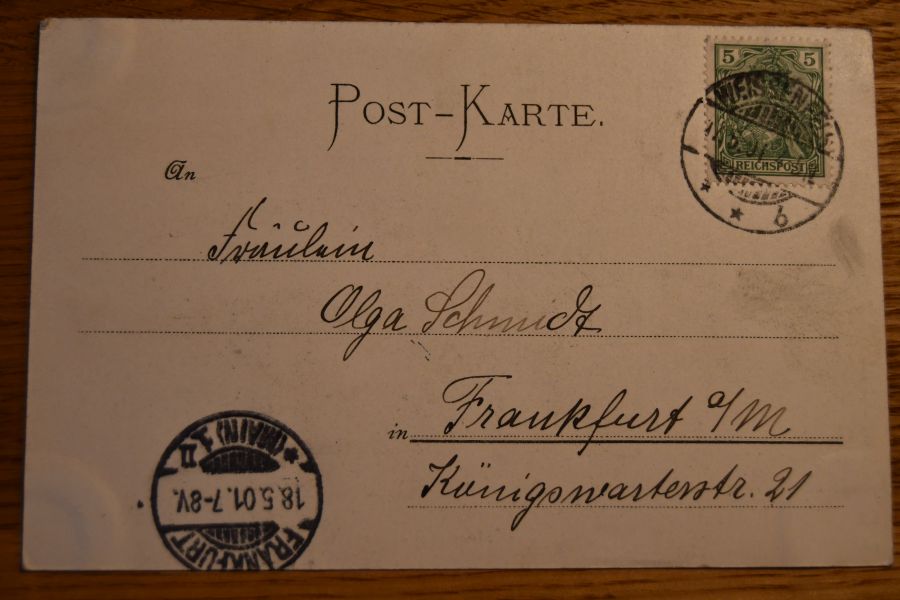 5 5
REICHSPOST
6
POST-KARTE.
An
Fräulein
Olga Schmidt
in Frankfurt a/M
Königswarterstr. 21
FRANKFURT
18.5.01.7-8V.
(MAIN) 1